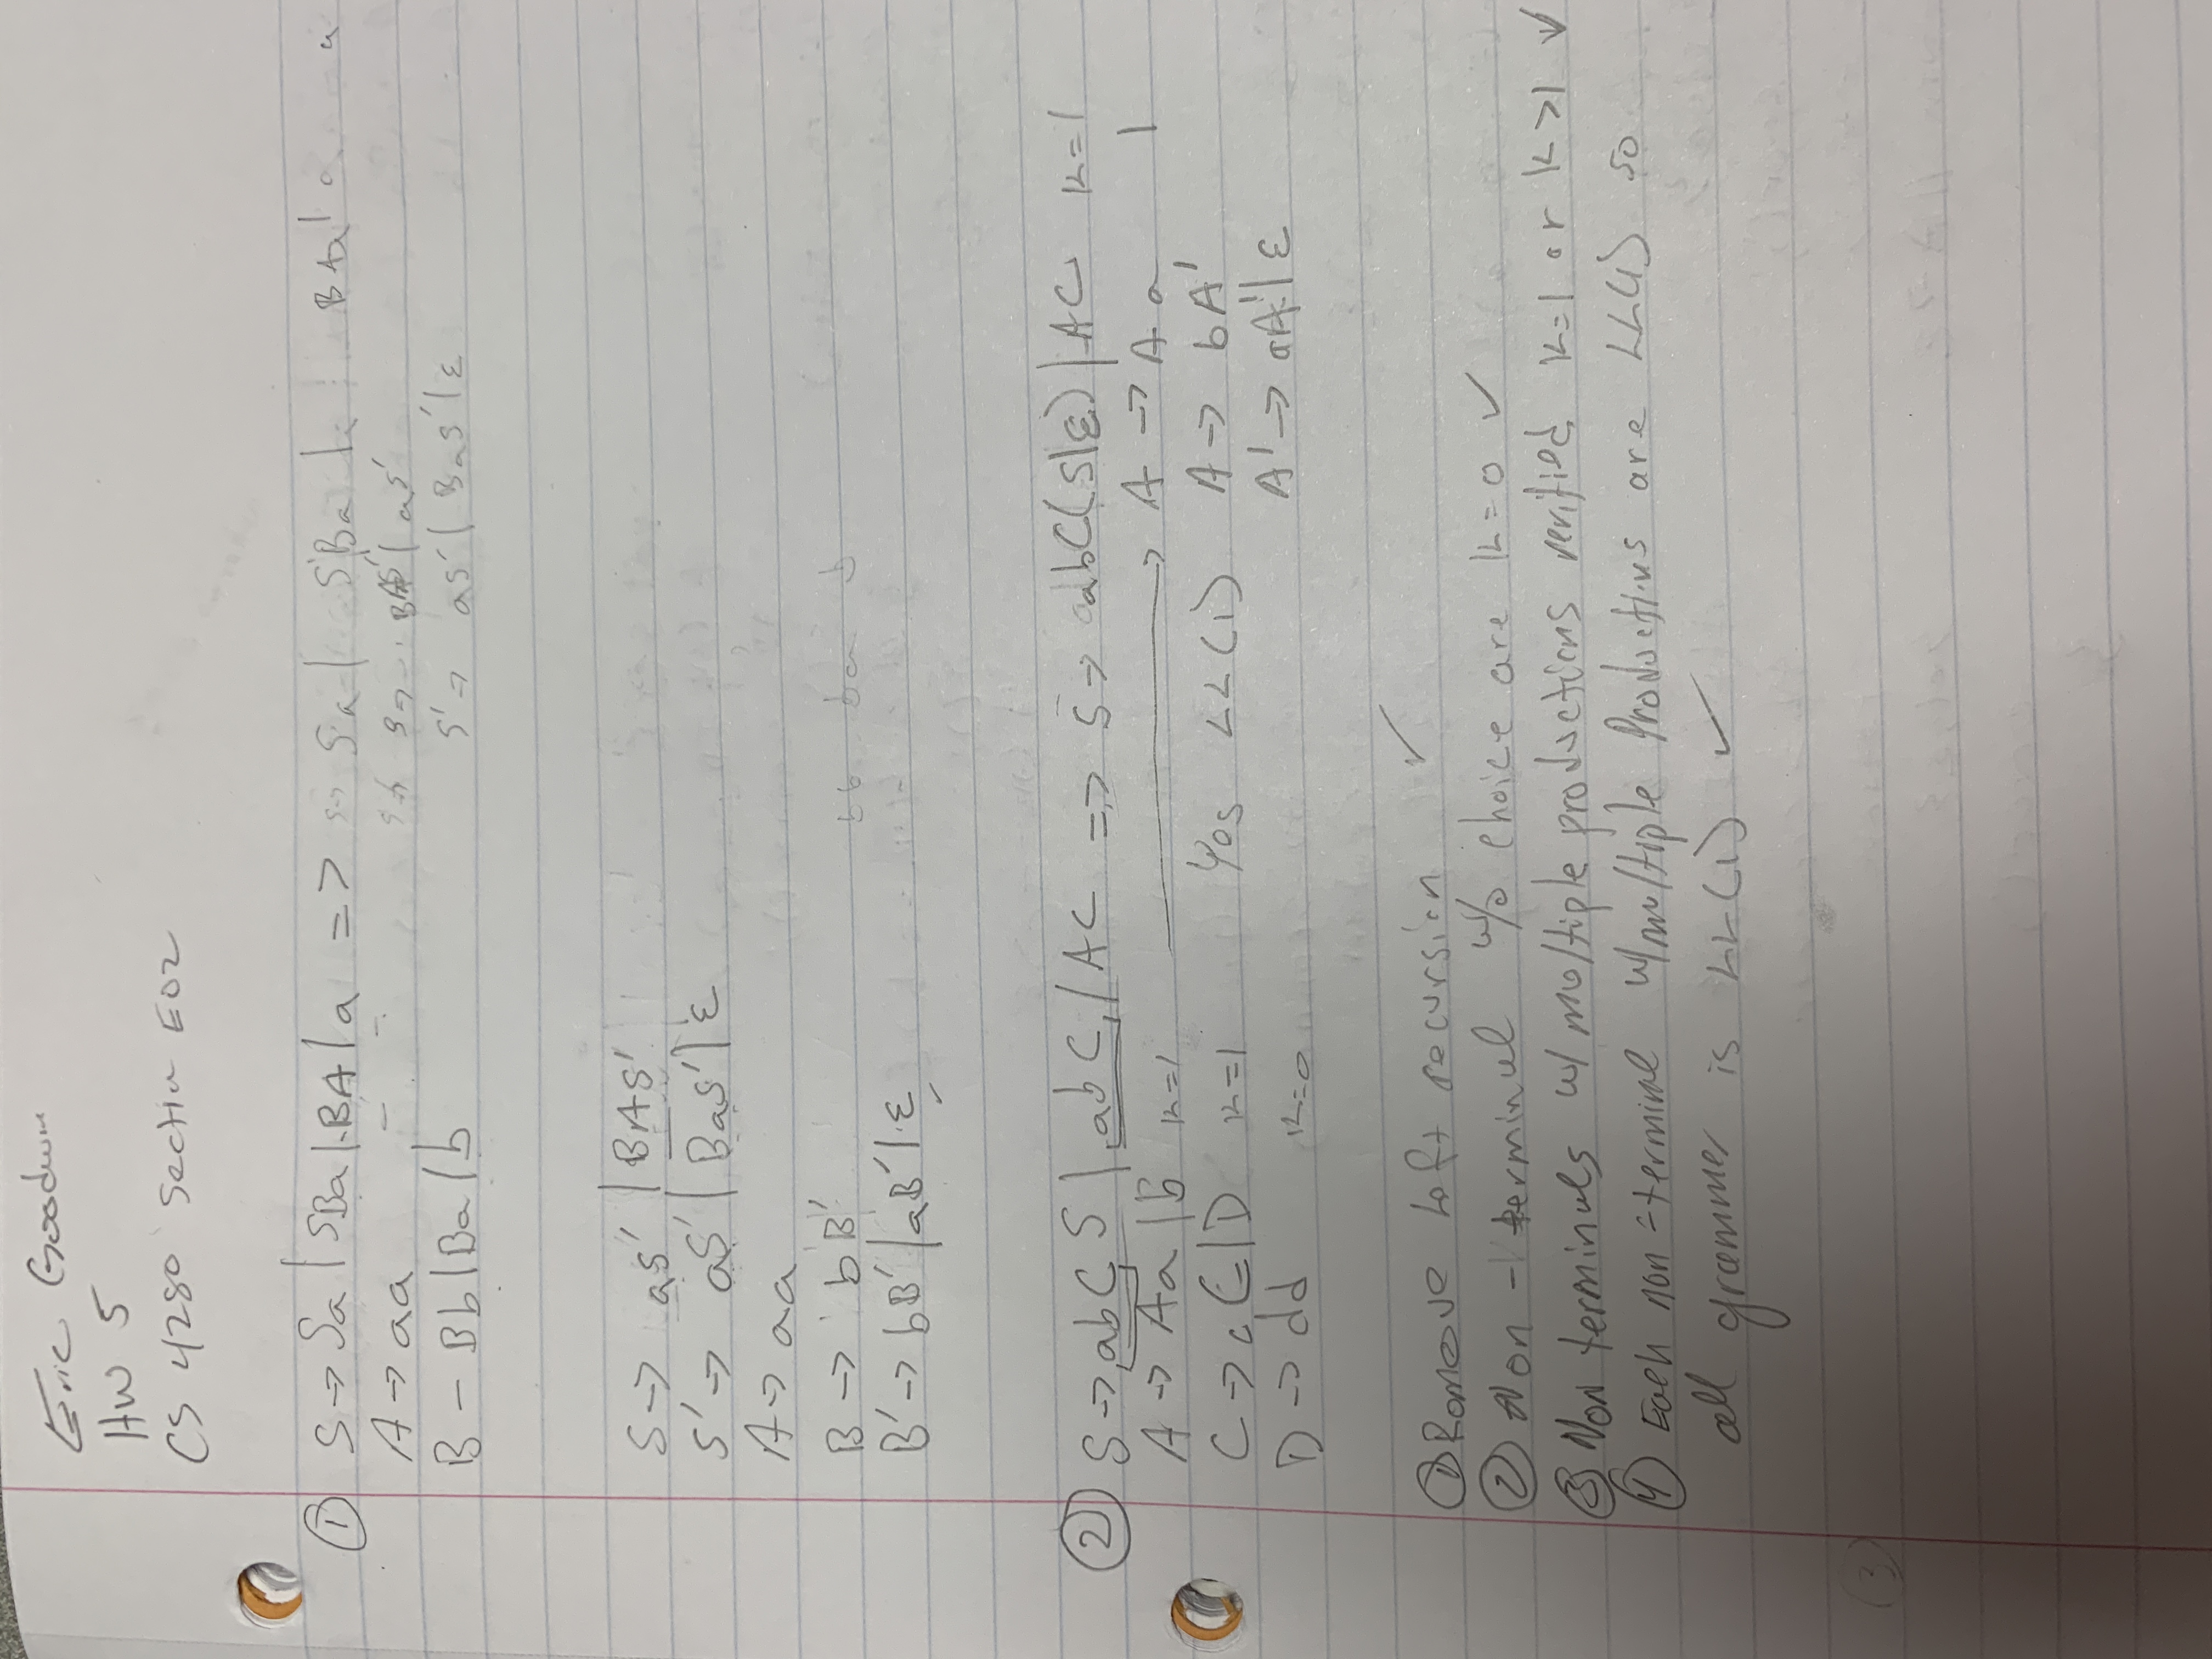 Eric Goodwin
HW 5
CS 4280 Section E02
① S → Sa | SBa | BA | a => S → Sa | SBa | BAa | a a
A → aa S → BAS' | aS'
B - Bb | Ba | b S' → aS' | BaS' | ε
S → aS' | BAS'
S' → aS' | BaS' | ε
A → aa
B → bB' bb ba b
B' → bB' | aB' | ε
② S → abC S | abC | AC => S → abC(S|ε) | AC K=1
A → Aa | b K=1 → A → Aa 1
C → cC | D K=1 Yes LL(1) A → bA'
D → dd K=0 A' → aA' | ε
① Remove Left recursion ✓
② Non - terminul w/o choice are K=0 ✓
③ Non terminuls w/ multiple productions verified K=1 or K>1 ✓
④ Each non-terminal w/multiple Productions are LL(1) so
all grammer is LL(1) ✓
③